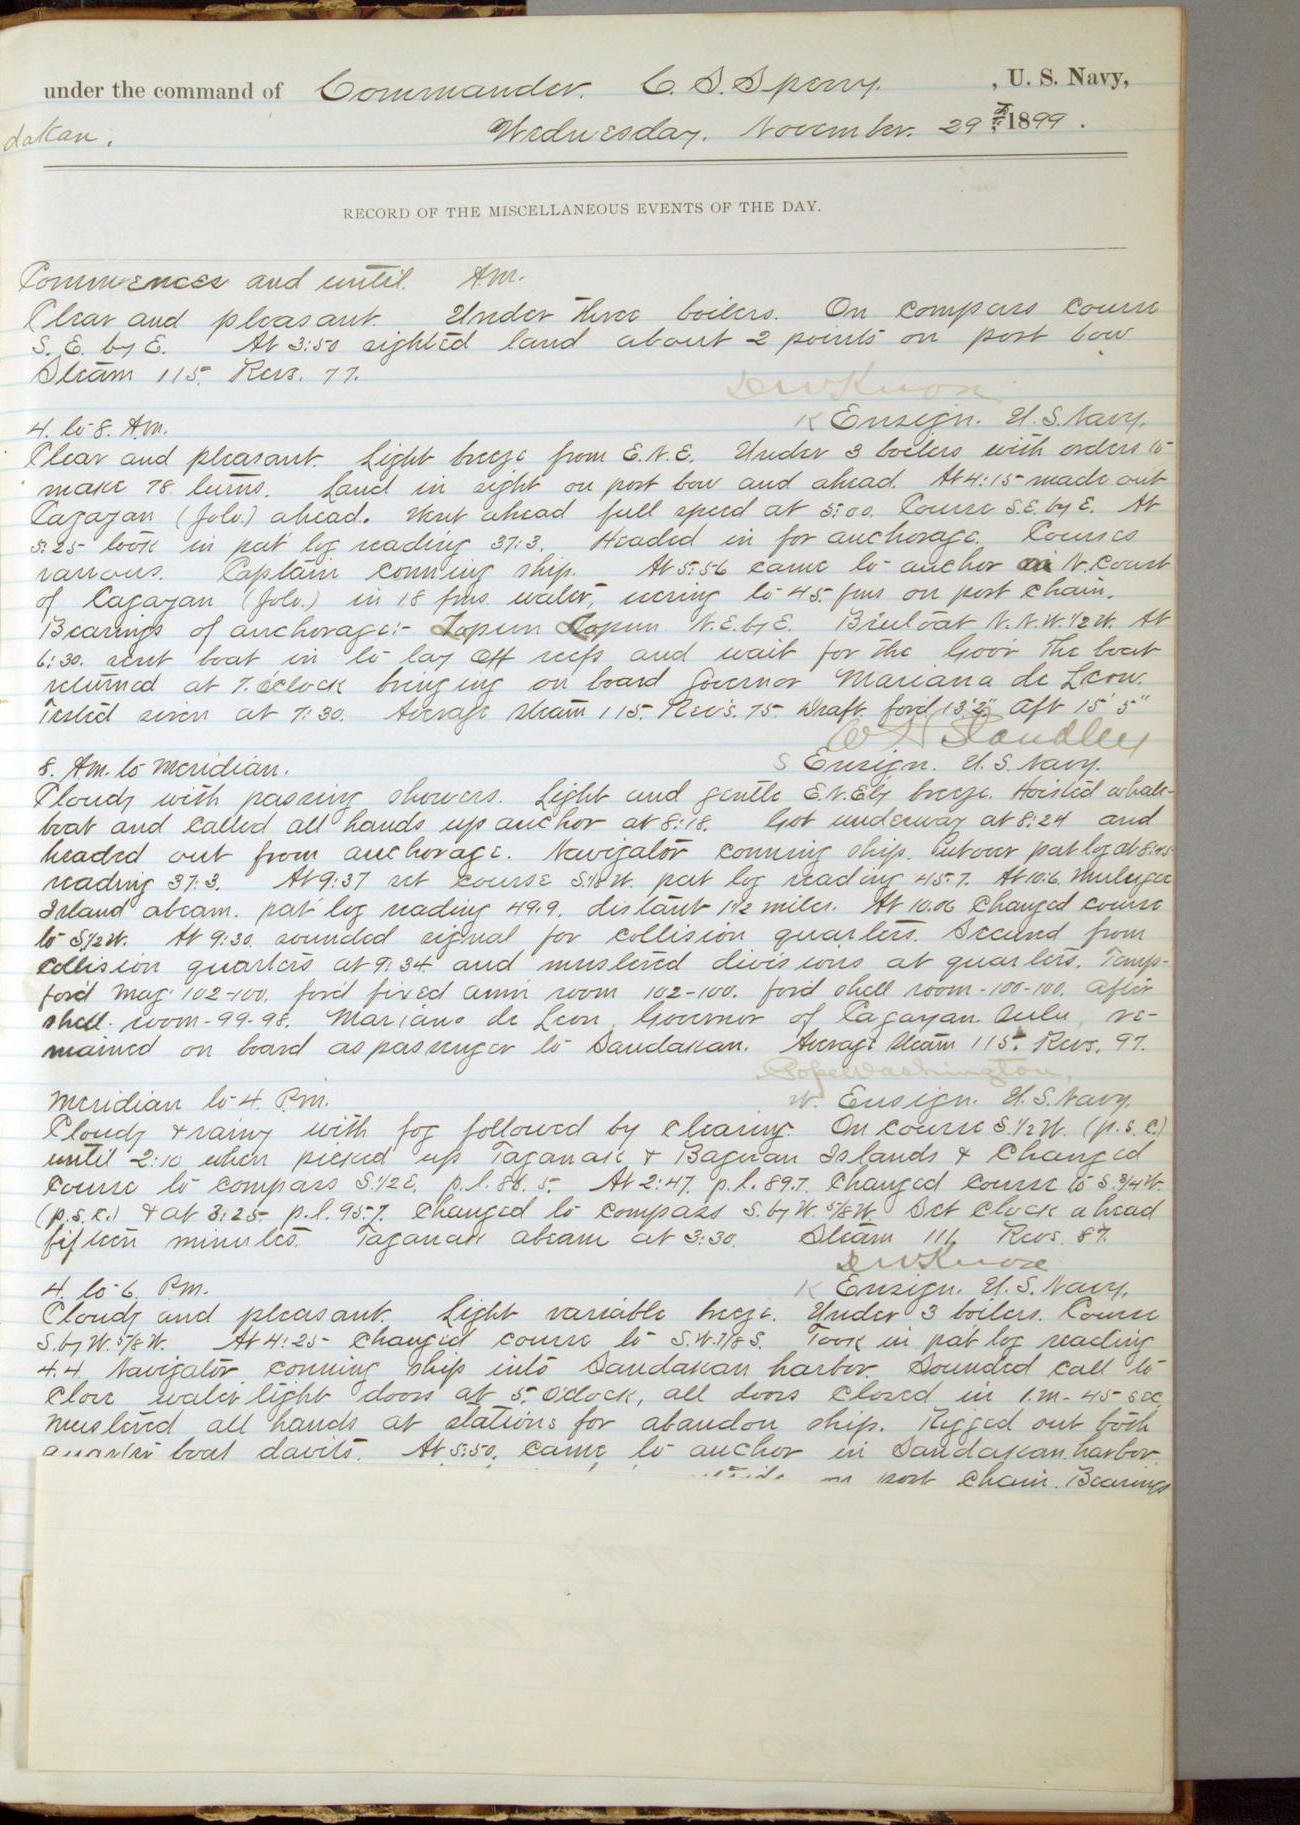 under the command of Commander. C. S. Sperry. , U. S. Navy,
dakan. Wednesday, November. 29th, 1899.
RECORD OF THE MISCELLANEOUS EVENTS OF THE DAY.
Commences and until. A.M.
Clear and pleasant. Under three boilers. On compass course
S. E. by E. At 3:50 sighted land about 2 points on port bow
Steam 115. Revs. 77.
D W Knox
4. to 8. A.M. K Ensign. U. S. Navy.
Clear and pleasant. Light breeze from E.N.E. Under 3 boilers with orders to
make 78 turns. Land in sight on port bow and ahead. At 4:15 made out
Cagayan (Jolo.) ahead. Went ahead full speed at 5:00. Course S.E. by E. At
5:25 took in pat log reading 37.3. Headed in for anchorage. Courses
various. Captain conning ship. At 5:56 came to anchor on N. coast
of Cagayan (Jolo.) in 18 fms water, veering to 45. fms on port chain.
Bearings of anchorage:- Lapun Lapun N.E. by E. Bintoat N.N.W. 1/2 W. At
6:30. sent boat in to lay off reefs and wait for the Gov'r The boat
returned at 7. o'clock bringing on board Governor Mariana de Leon.
Tested siren at 7:30. Average steam 115. Rev's. 75. Draft for'd 13' 2" aft 15' 5"
W H Standley
8. A.M. to Meridian. S Ensign. U. S. Navy.
Cloudy with passing showers. Light and gentle E.N.E'ly breeze. Hoisted whale-
boat and called all hands up anchor at 8:18. Got underway at 8:24 and
headed out from anchorage. Navigator conning ship. Put over pat log at 8:45
reading 37.3. At 9:37 set course S.1/8 W. pat log reading 45.7. At 10:6
Island abeam. pat log reading 49.9. distant 1 1/2 miles. At 10.06 changed course
to S.1/2 W. At 9:30. sounded signal for collision quarters. Secured from
collision quarters at 9:34. and mustered divisions at quarters. Temps-
for'd mag. 102-100. for'd fixed amm room 102-100. for'd shell room-100-100. after
shell. room-99-98. Mariano de Leon, Governor of Cagayan Sulu, re-
mained on board as passenger to Sandakan. Average steam 115. Revs. 97.
Pope Washington,
Meridian to 4. P.M. W. Ensign. U. S. Navy.
Cloudy & rainy with fog followed by clearing. On course S 1/2 W. (p.s.c.)
until 2:10 when picked up Taganak & Baguan Islands & changed
course to compass S.1/2 E. p.l. 86.5. At 2:47. p.l. 89.7. changed course to S. 3/4 W.
(p.s.c.) & at 3:25 p.l. 95.7. changed to compass S. by W. 5/8 W. Set clock ahead
fifteen minutes. Taganak abeam at 3:30. Steam 111. Revs. 87.
D W Knox
4. to 6. P.M. K Ensign. U. S. Navy.
Cloudy and pleasant. Light variable breeze. Under 3 boilers. Course
S. by W. 5/8 W. At 4:25 changed course to S.W. 7/8 S. Took in pat log reading
4.4. Navigator conning ship into Sandakan harbor. Sounded call to
close water tight doors at 5. o'clock, all doors closed in 1.m - 45 sec
Mustered all hands at stations for abandon ship. Rigged out both
quarter boat davits. At 5:50. came to anchor in Sandakan harbor
on port chain. Bearings